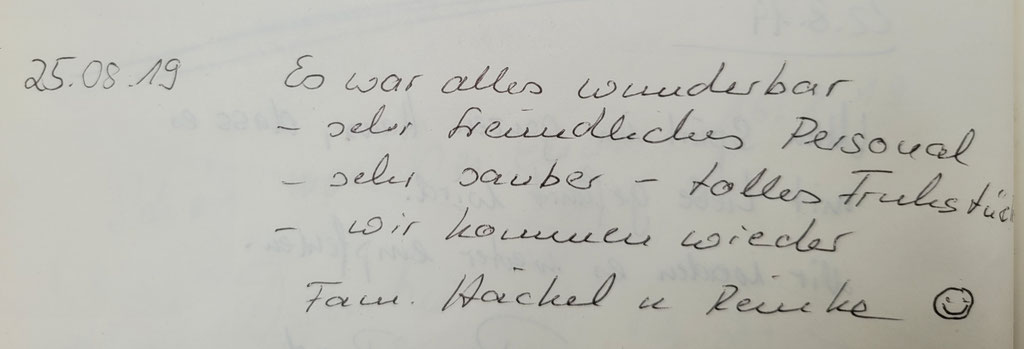 25.08.19 Es war alles wunderbar
- sehr freundliches Personal
- sehr sauber - tolles Frühstüc
- wir kommen wieder
Fam. Häckel u Reinke ☺